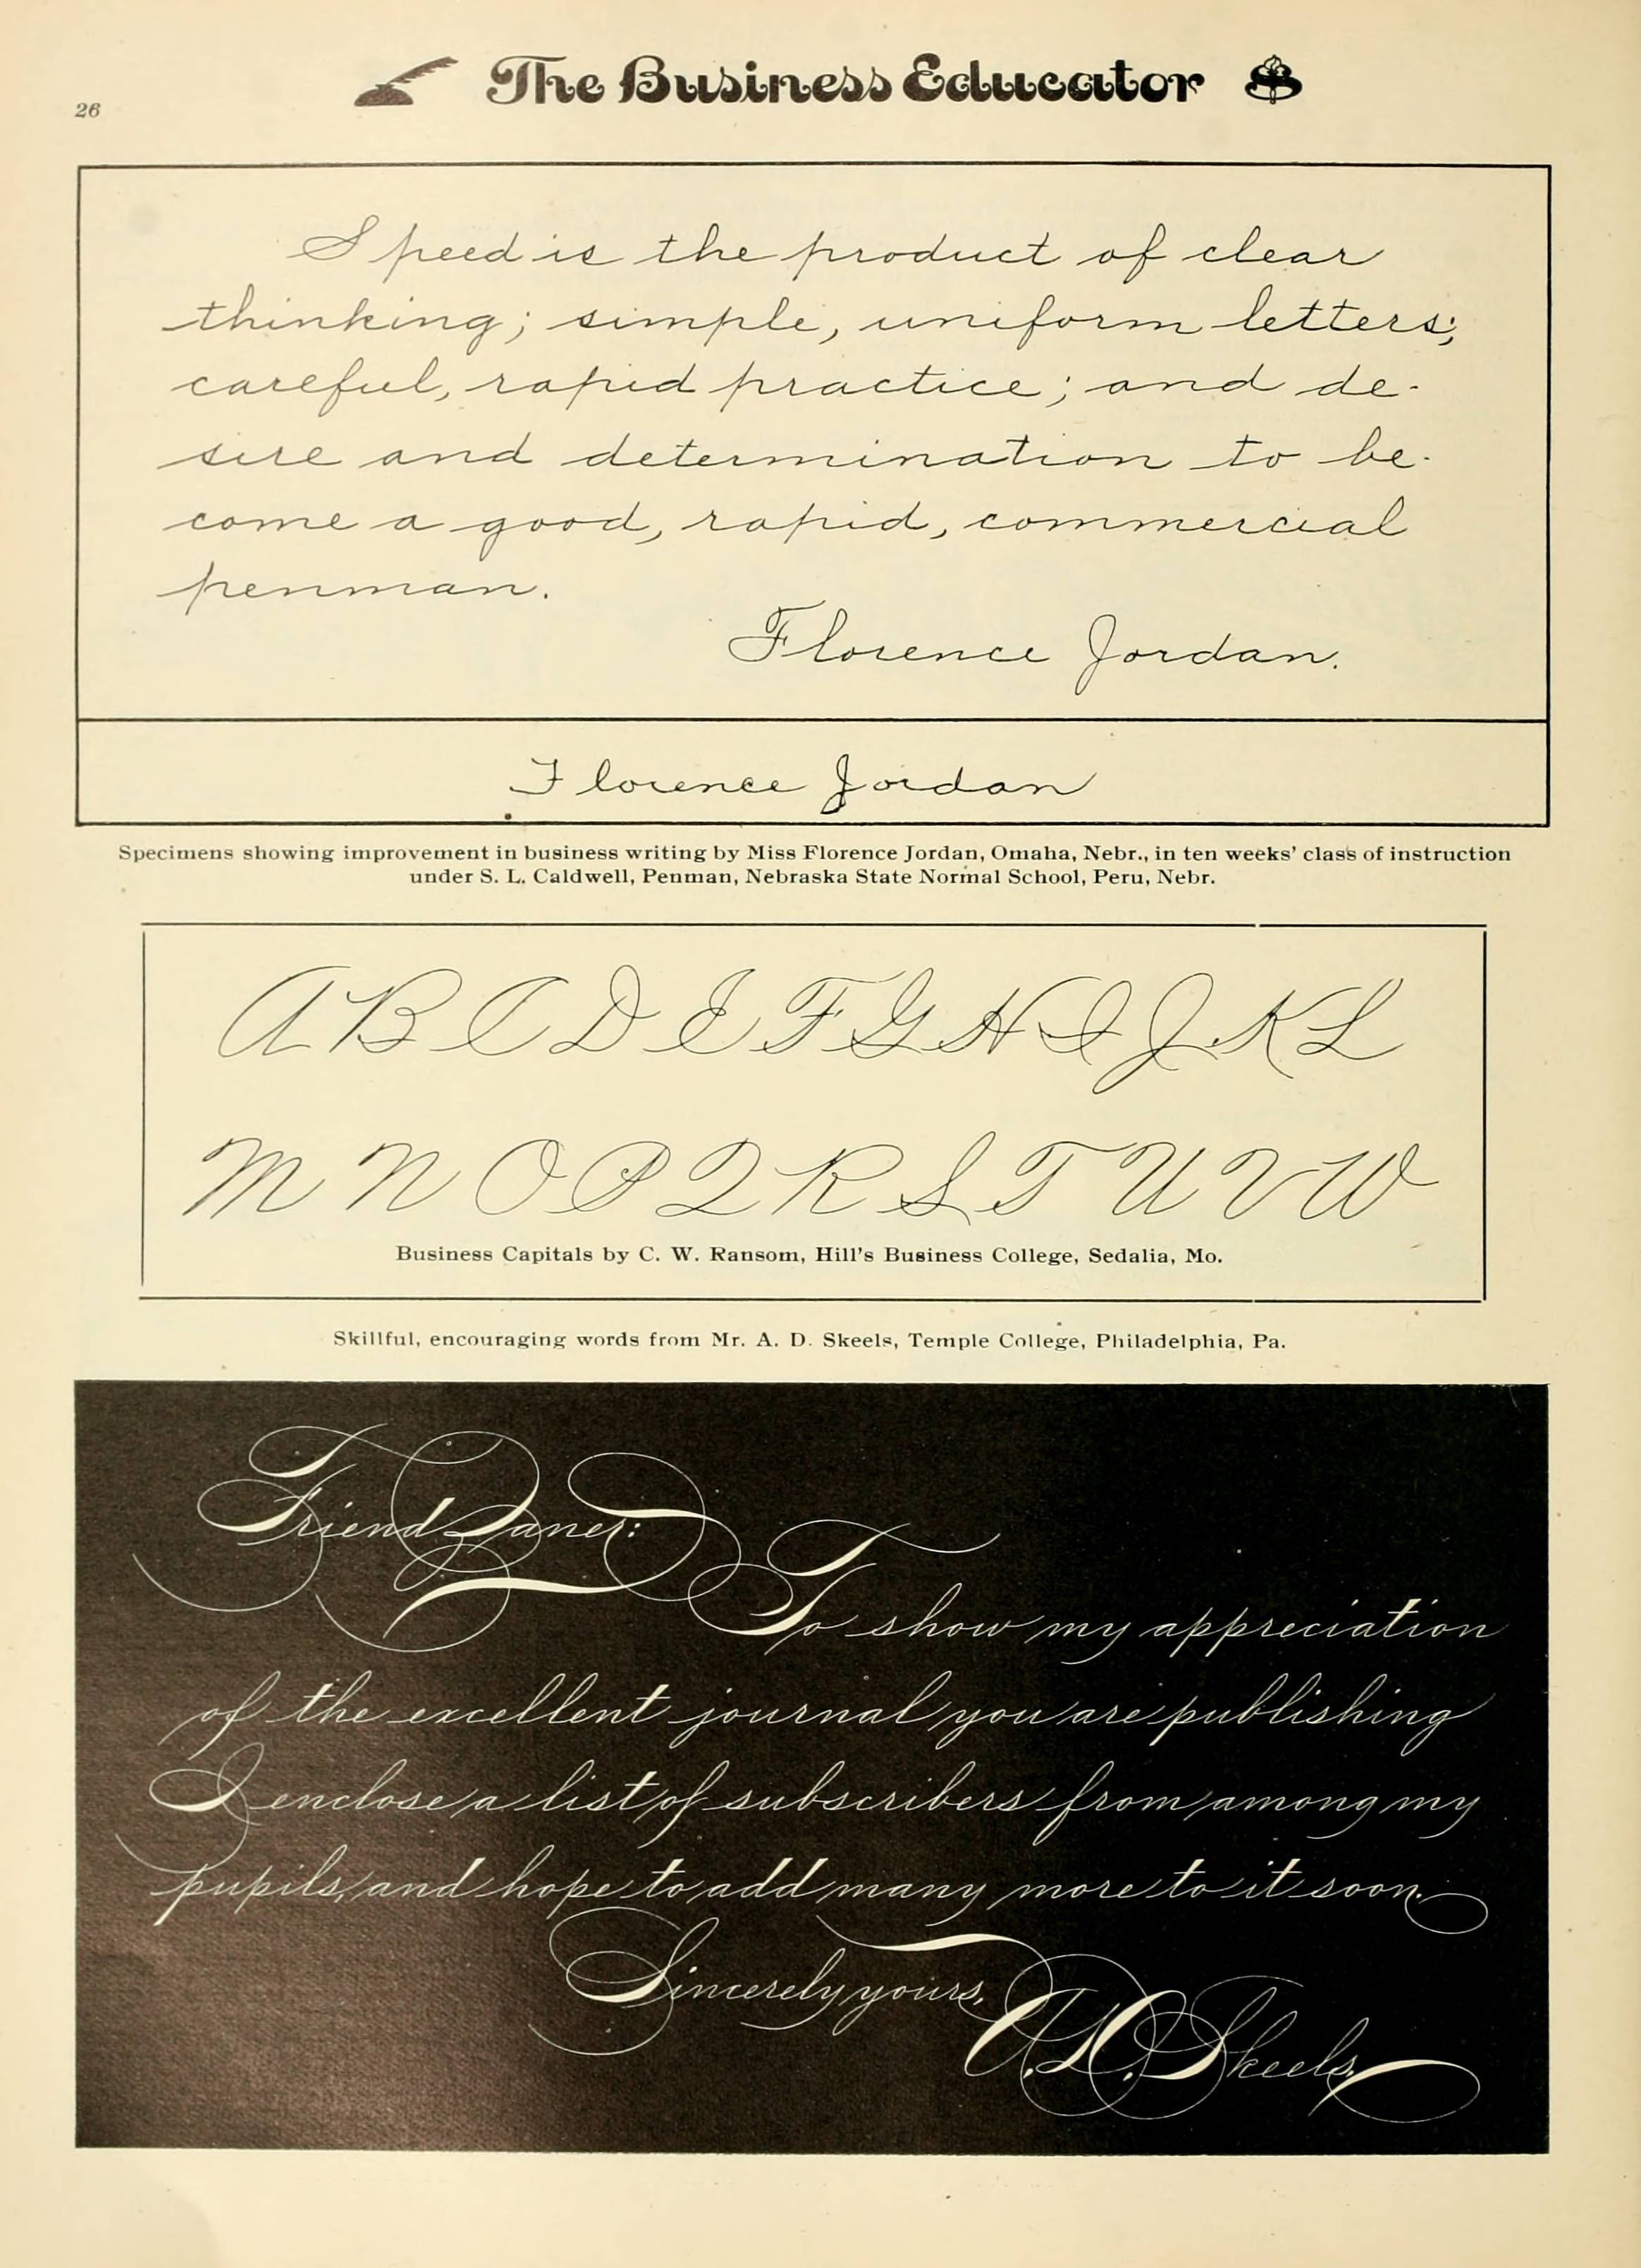 26
The Business Educator
Speed is the product of clear
thinking; simple, uniform letters;
careful, rapid practice; and de-
sire and determination to be-
come a good, rapid, commercial
penman.
Florence Jordan.
Florence Jordan
Specimens showing improvement in business writing by Miss Florence Jordan, Omaha, Nebr., in ten weeks' class of instruction
under S. L. Caldwell, Penman, Nebraska State Normal School, Peru, Nebr.
A B C D E F G H I J K L
M N O P Q R S T U V W
Business Capitals by C. W. Ransom, Hill's Business College, Sedalia, Mo.
Skillful, encouraging words from Mr. A. D. Skeels, Temple College, Philadelphia, Pa.
Friend Zaner:
To show my appreciation
of the excellent journal you are publishing
I enclose a list of subscribers from among my
pupils, and hope to add many more to it soon.
Sincerely yours,
A. D. Skeels.